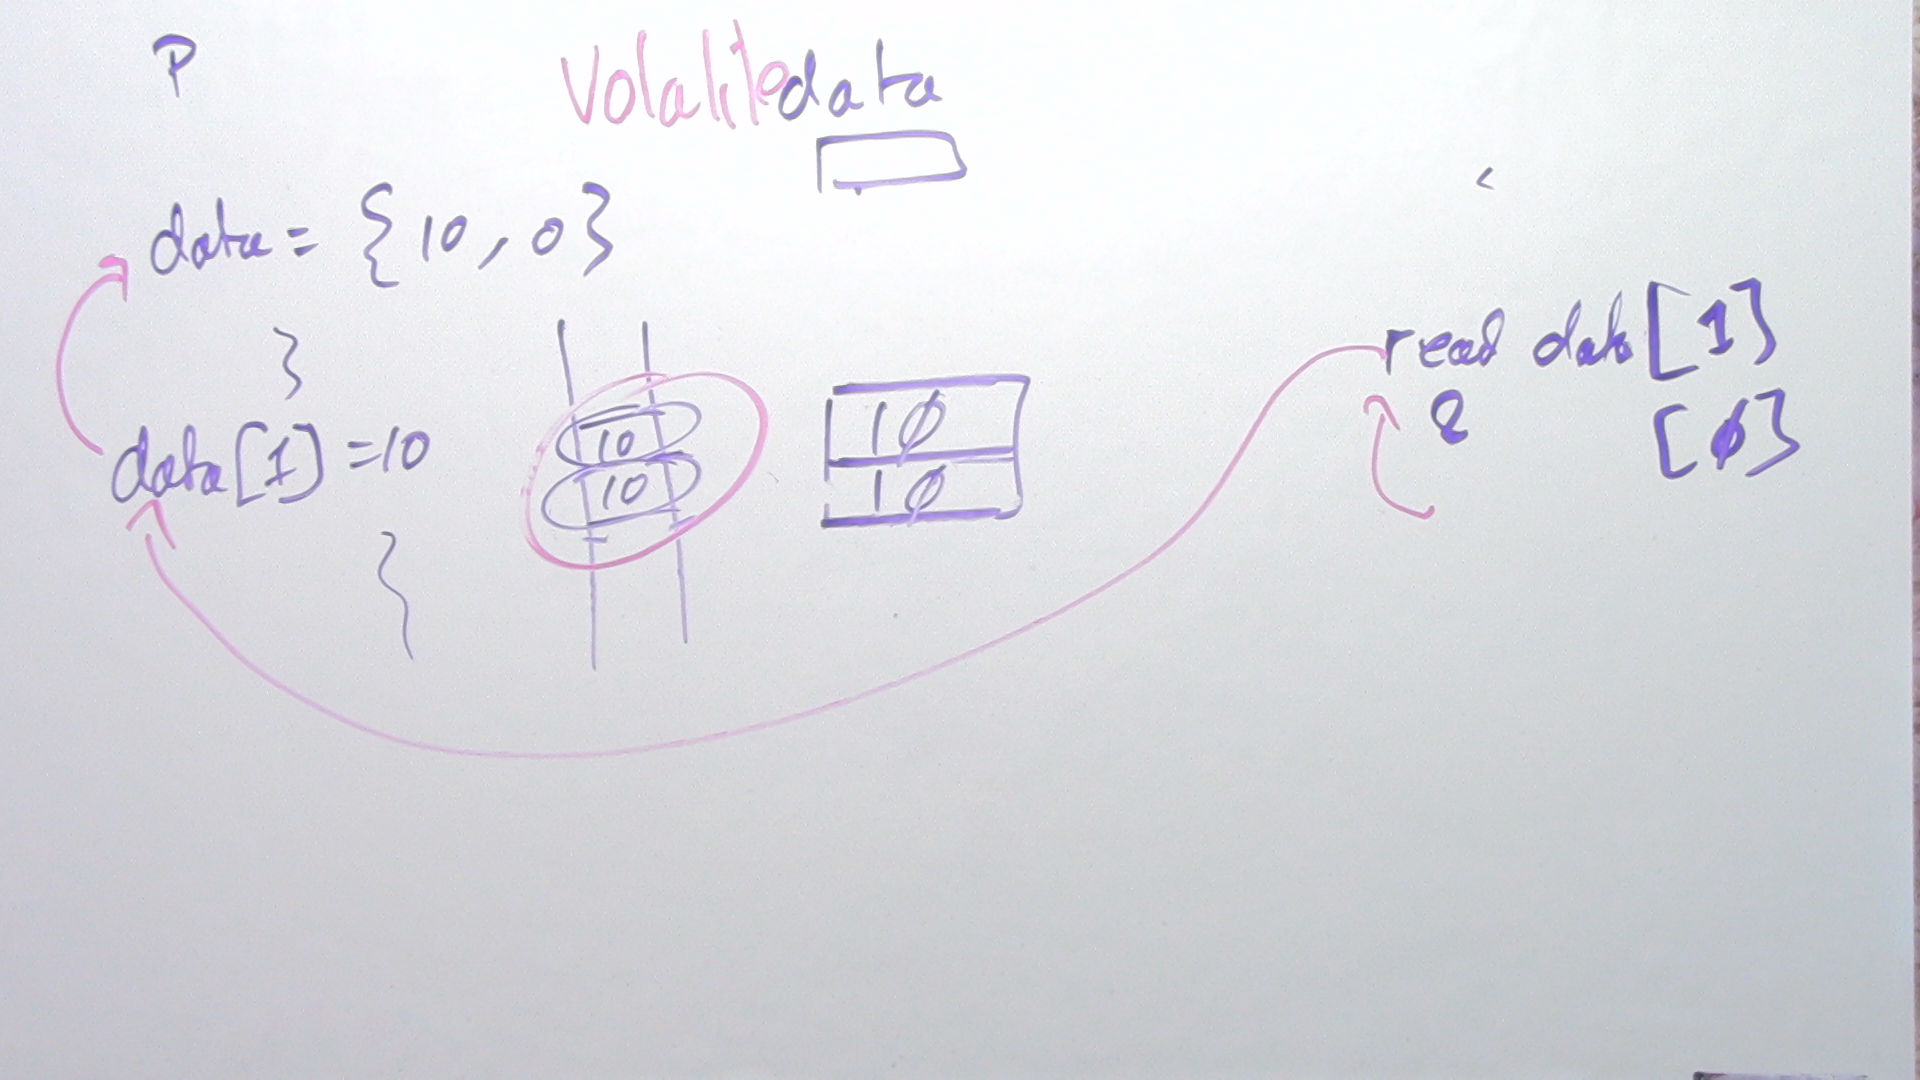 P
Volalite data
data = {10, 0}
}
data[1] = 10
10
10
10
10
read data[1]
[0]